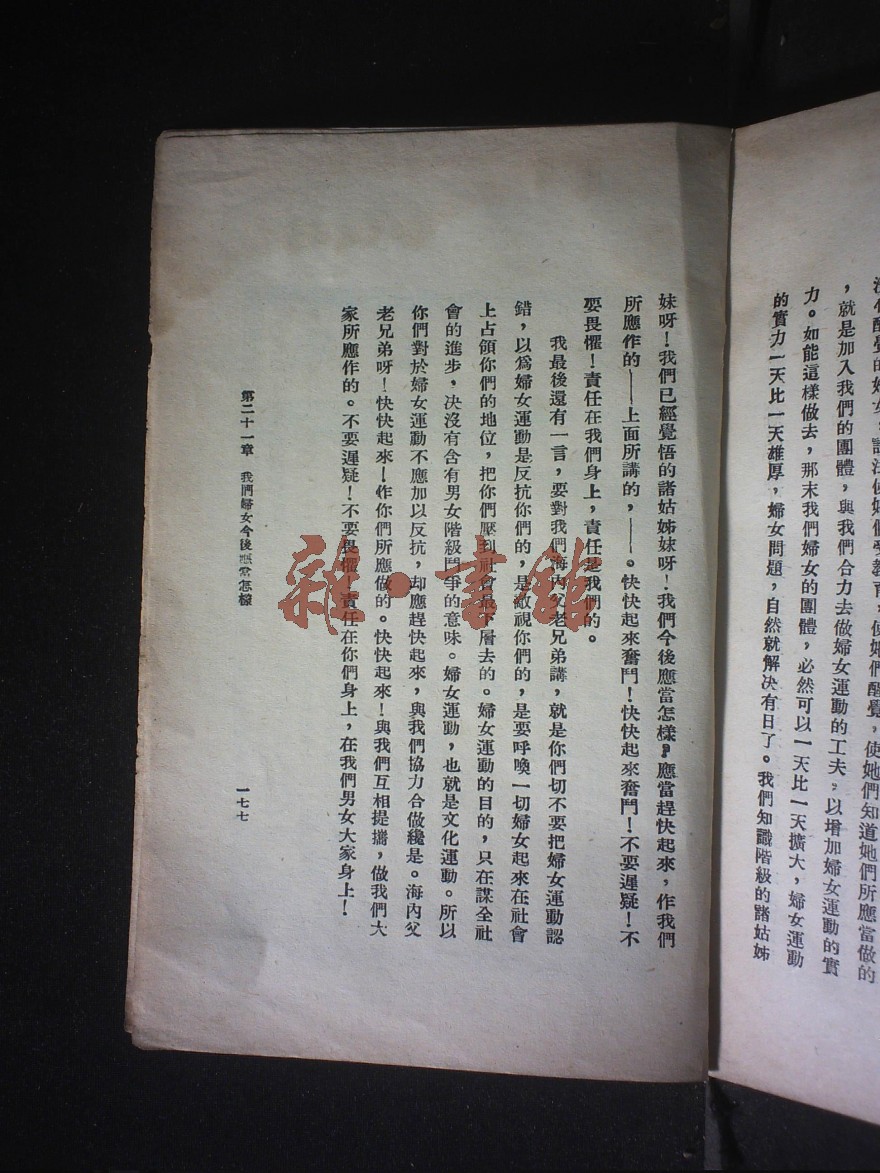 的醒覺的婦女,設法使她們受教育,使她們醒覺,使她們知道她們所應當做的
,就是加入我們的團體,與我們合力去做婦女運動的工夫,以增加婦女運動的實
力。如能這樣做去,那末我們婦女的團體,必然可以一天比一天擴大,婦女運動
的實力一天比一天雄厚,婦女問題,自然就解決有日了。我們知識階級的諸姑姊
妹呀!我們已經覺悟的諸姑姊妹呀!我們今後應當怎樣?應當趕快起來,作我們
所應作的——上面所講的,——。快快起來奮鬥!快快起來奮鬥!不要遲疑!不
要畏懼!責任在我們身上,責任是我們的。
我最後還有一言,要對我們海內父老兄弟講,就是你們切不要把婦女運動認
錯,以爲婦女運動是反抗你們的,是敵視你們的,是要呼喚一切婦女起來在社會
上占領你們的地位,把你們壓到社會最下層去的。婦女運動的目的,只在謀全社
會的進步,決沒有含有男女階級鬥爭的意味。婦女運動,也就是文化運動。所以
你們對於婦女運動不應加以反抗,却應趕快起來,與我們協力合做纔是。海內父
老兄弟呀!快快起來!作你們所應做的。快快起來!與我們互相提攜,做我們大
家所應作的。不要遲疑!不要畏懼!責任在你們身上,在我們男女大家身上!
第二十一章 我們婦女今後應當怎樣
一七七
雜·書館